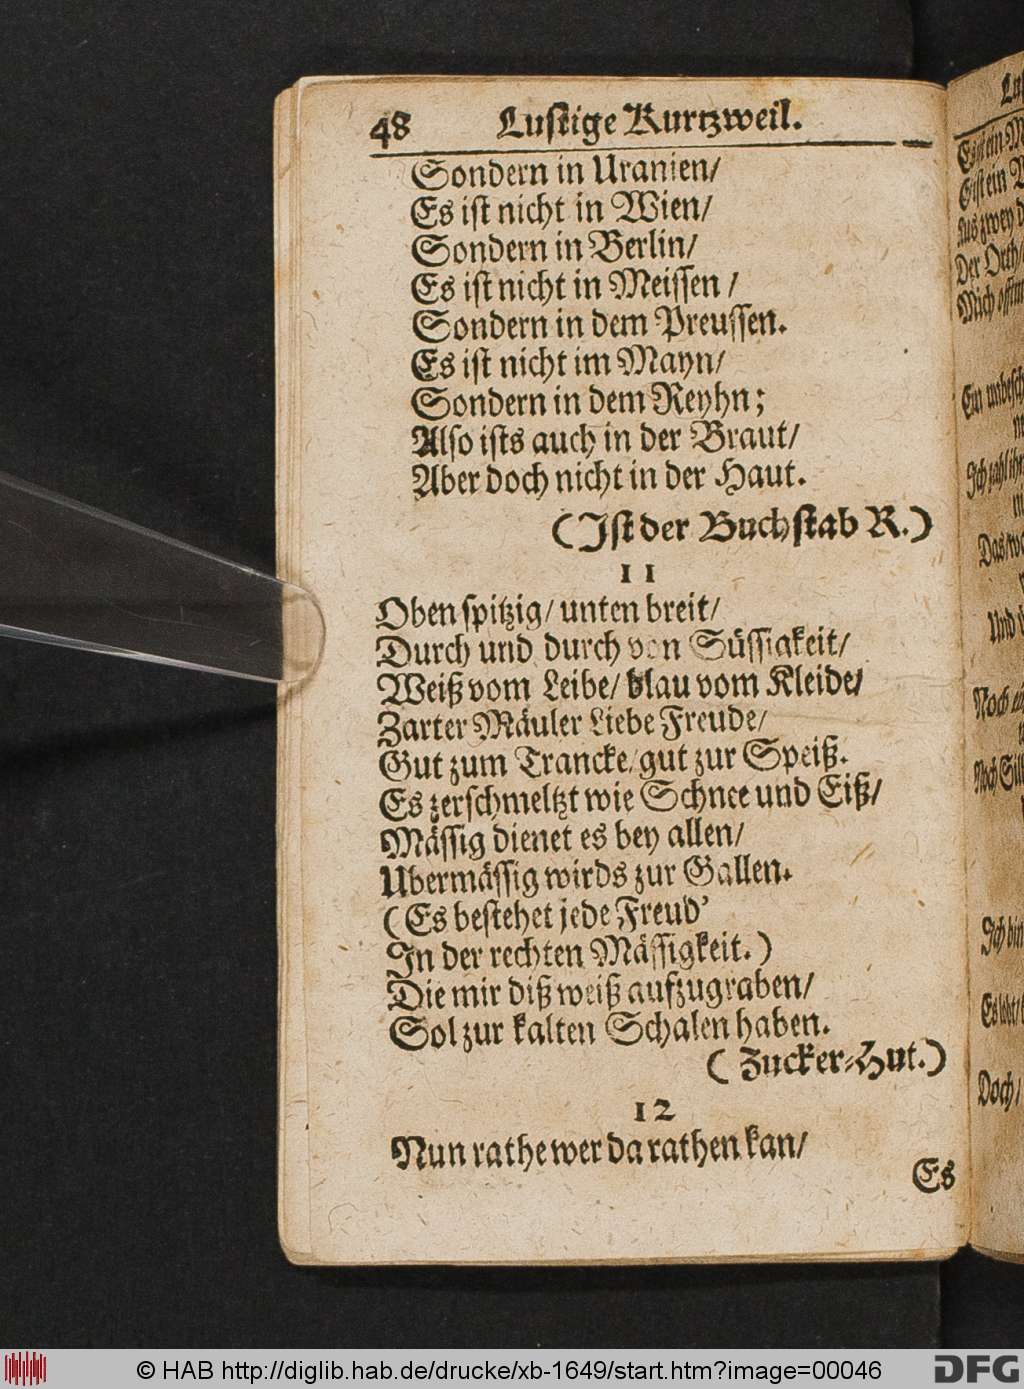 48 Lustige Kurtzweil.
Sondern in Uranien/
Es ist nicht in Wien/
Sondern in Berlin/
Es ist nicht in Meissen /
Sondern in dem Preussen.
Es ist nicht im Mayn/
Sondern in dem Reyhn;
Also ists auch in der Braut/
Aber doch nicht in der Haut.
(Ist der Buchstab R.)
11
Oben spitzig/ unten breit/
Durch und durch von Süssigkeit/
Weiß vom Leibe/ blau vom Kleide/
Zarter Mäuler liebe Freude/
Gut zum Trancke/ gut zur Speiß.
Es zerschmeltzt wie Schnee und Eiß/
Mässig dienet es bey allen/
Ubermässig wirds zur Gallen.
(Es bestehet jede Freud'
In der rechten Mässigkeit.)
Die mir diß weiß aufzugraben/
Sol zur kalten Schalen haben.
(Zucker-Hut.)
12
Nun rathe wer da rathen kan/
Es
Der Orth/
Noch
Doch/
© HAB http://diglib.hab.de/drucke/xb-1649/start.htm?image=00046
DFG